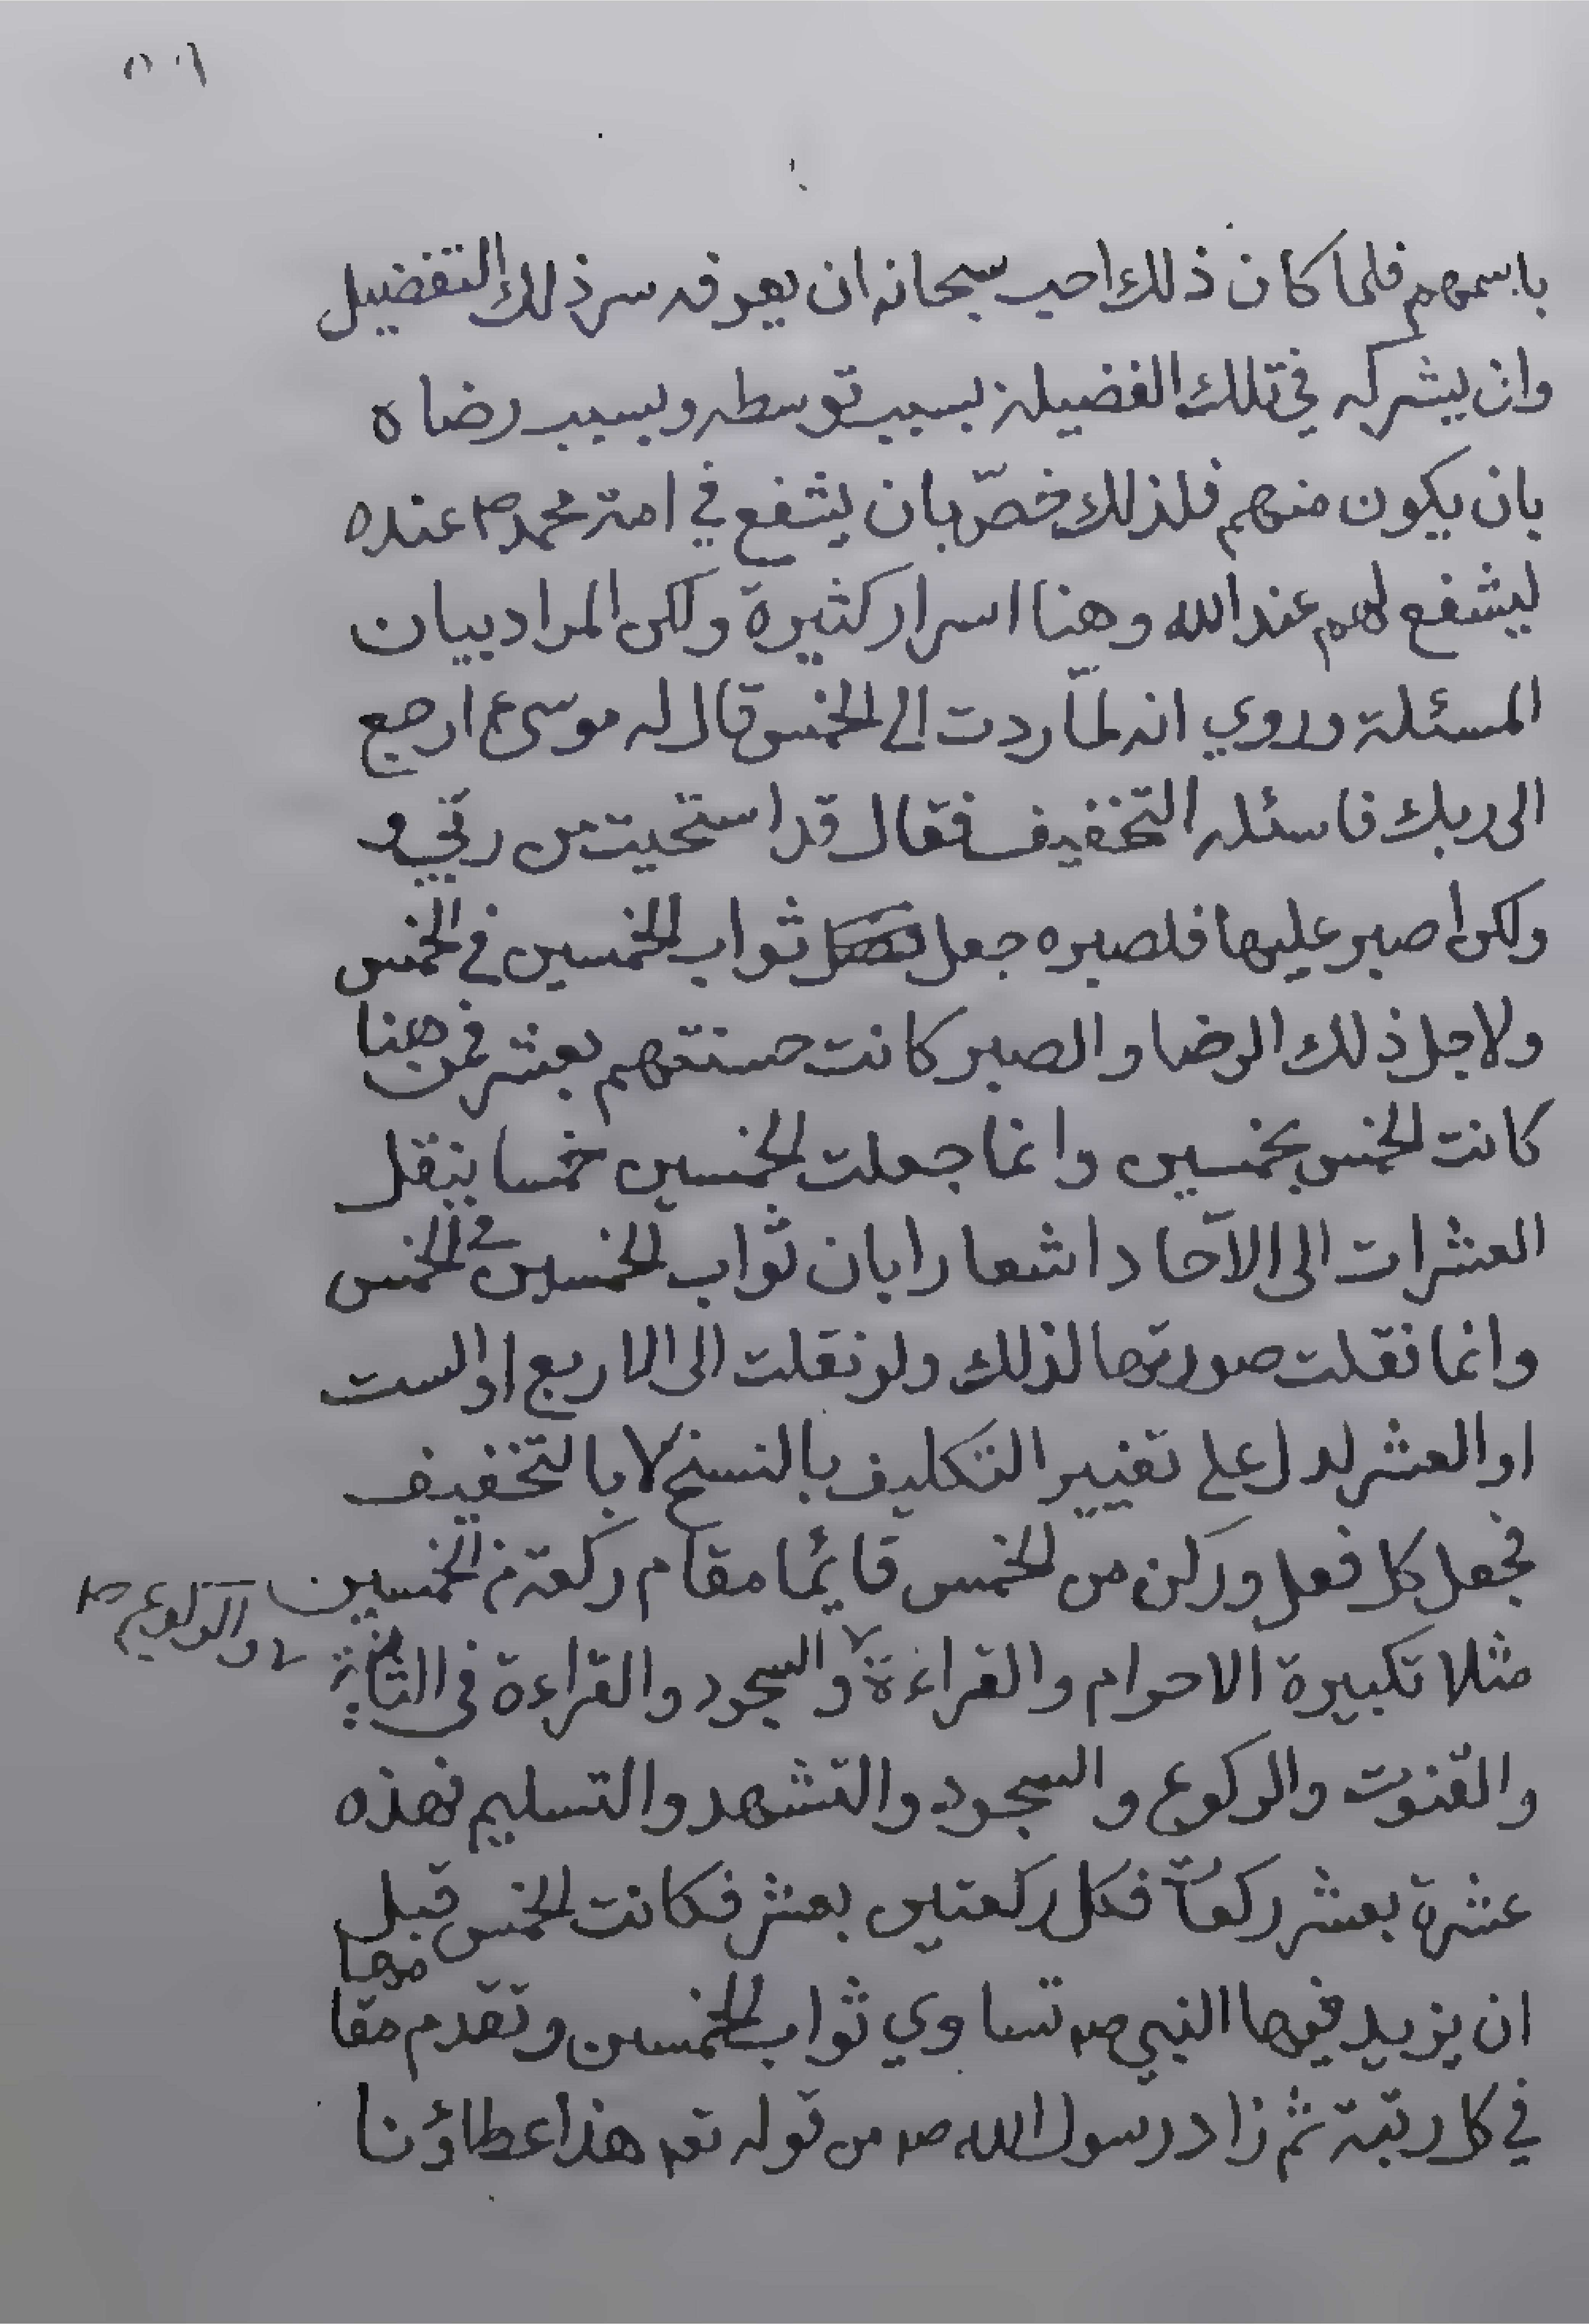 باسمهم فلما كان ذلك احب سبحانه ان يعرفه سر ذلك التفضيل
وان يشركه في تلك الفضيلة بسبب توسطه وبسبب رضاه
بان يكون منهم فلذلك خصّ بان يشفع في امة محمد ص عنده
ليشفع لهم عند الله وهنا اسرار كثيرة ولكن المراد بيان
المسئلة وروي انه لمّا ردت الى الخمس قال له موسى ع ارجع
الى ربك فاسئله التخفيف فقال قد استحيت من ربّي و
ولكن اصبر عليها فلصبره جعل ثواب الخمسين في الخمس
ولاجل ذلك الرضا والصبر كانت حسنتهم بعشر فمن هنا
كانت الخمس بخمسين وانما جعلت الخمسين خمسا بنقل
العشرات الى الآحاد اشعارا بان ثواب الخمسين في الخمس
وانما نقلت صورتها لذلك ولو نقلت الى الاربع او الست
او العشر لدل على تغيير التكليف بالنسخ لا بالتخفيف
فجعل كل فعل وركن من الخمس قائما مقام ركعة من الخمسين
مثلا تكبيرة الاحرام والقراءة والسجود والقراءة في الثانية
والركوع ص
والقنوت والركوع والسجود والتشهد والتسليم فهذه
عشرة بعشر ركعات فكل ركعتين بعشر فكانت الخمس قبل
ان يزيد فيها النبي ص تساوي ثواب الخمسين وتقدم مقامها
في كل رتبة ثم زاد رسول الله ص من قوله تع هذا عطاؤنا